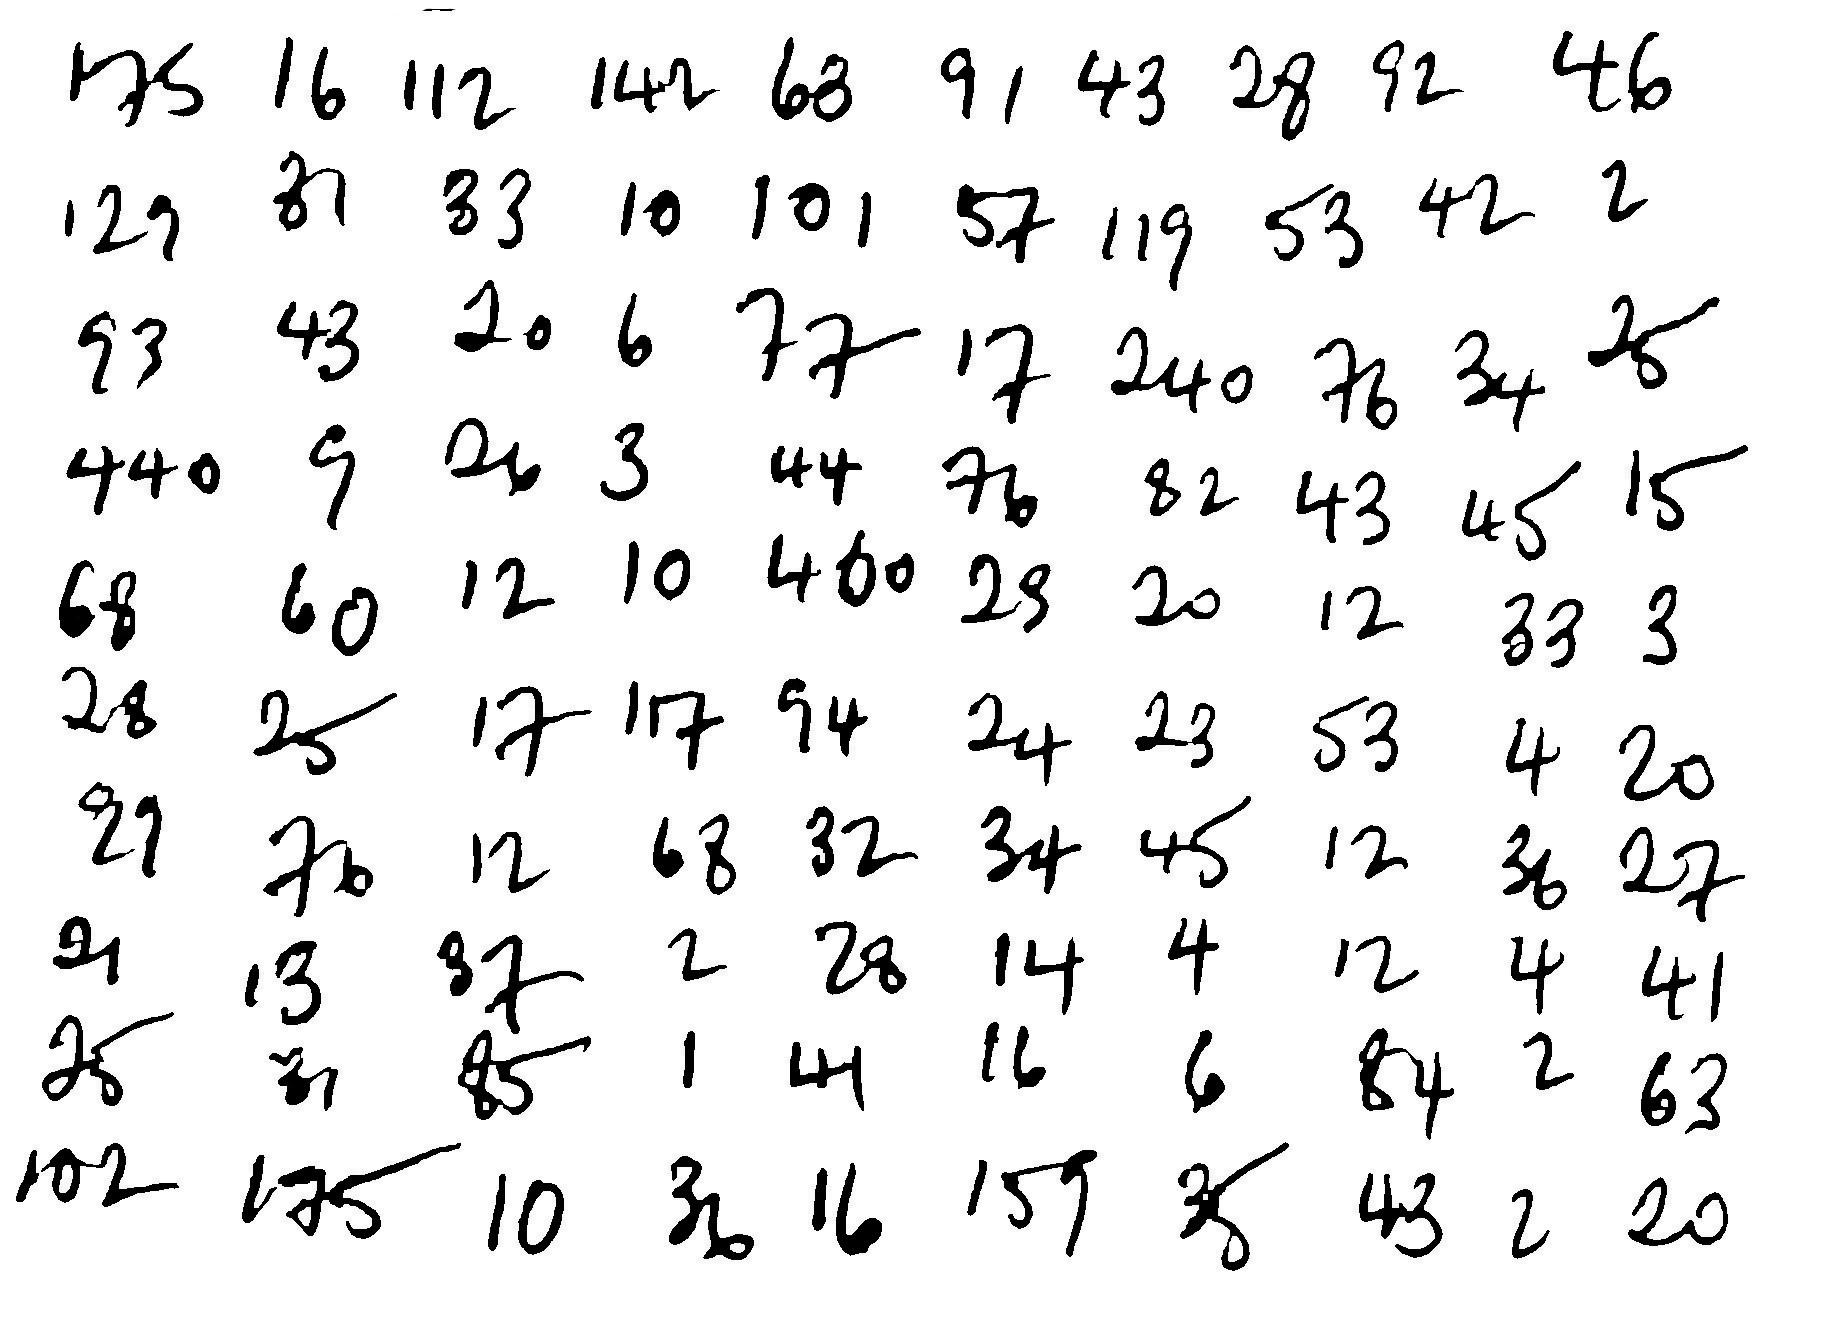 175 16 112 142 63 91 43 28 92 46
129 31 33 10 101 57 119 53 42 2
93 43 20 6 77 17 240 76 34 25
440 9 26 3 44 76 82 43 45 15
68 60 12 10 460 29 20 12 33 3
28 25 17 117 94 24 23 53 4 20
29 76 12 68 32 34 45 12 36 27
21 13 37 2 28 14 4 12 4 41
25 31 85 1 41 16 6 84 2 63
102 175 10 36 16 159 35 43 2 20